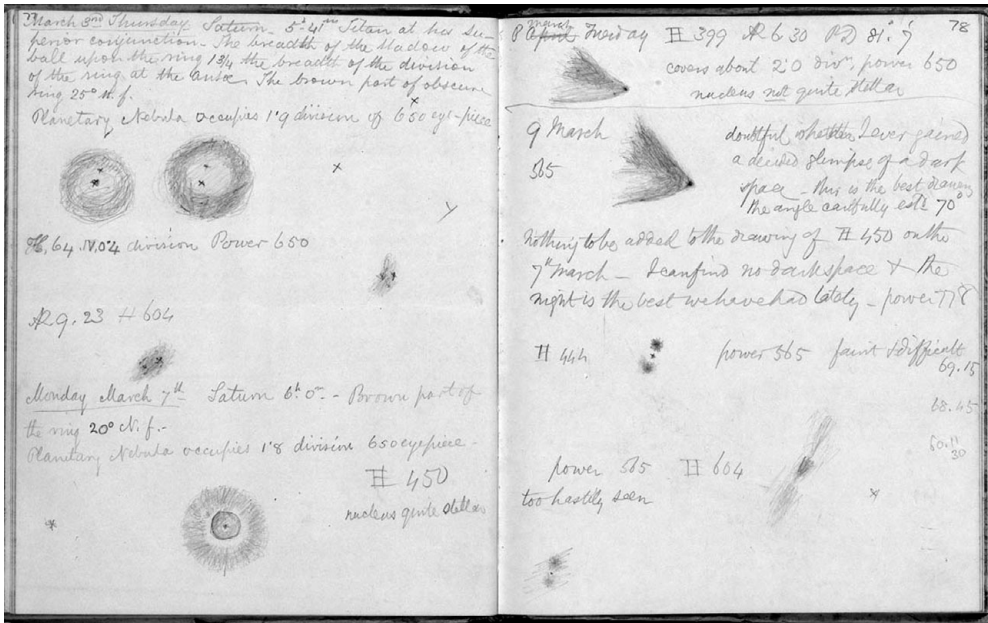 March 3rd Thursday Saturn - 5h 41m Titan at his su-
perior conjunction - The breadth of the shadow of the
ball upon the ring 1 3/4 the breadth of the division
of the ring at the ansæ - The brown part of obscure
ring 25° N.f.
Planetary Nebula occupies 1'9 division of 650 eye-piece
H. 64 N.0'4 division Power 650
AR 9. 23 H 604
Monday March 7th Saturn 6h 0m - Brown part of
the ring 20° N.f. -
Planetary Nebula occupies 1'8 division 650 eyepiece -
H 450
nucleus quite stellar
78
March
8 April Tuesday H 399 AR 6 30 PD 81° 7'
covers about 2'0 divn, power 650
nucleus not quite stellar
9 March
565
doubtful whether I ever gained
a decided glimpse of a dark
space - this is the best drawing
the angle carefully estd 70°
Nothing to be added to the drawing of H 450 on the
7th March - I can find no dark space & the
night is the best we have had lately - power 778
H 444 power 565 faint & difficult
69.15
68.45
60.11
30
power 565 H 604
too hastily seen